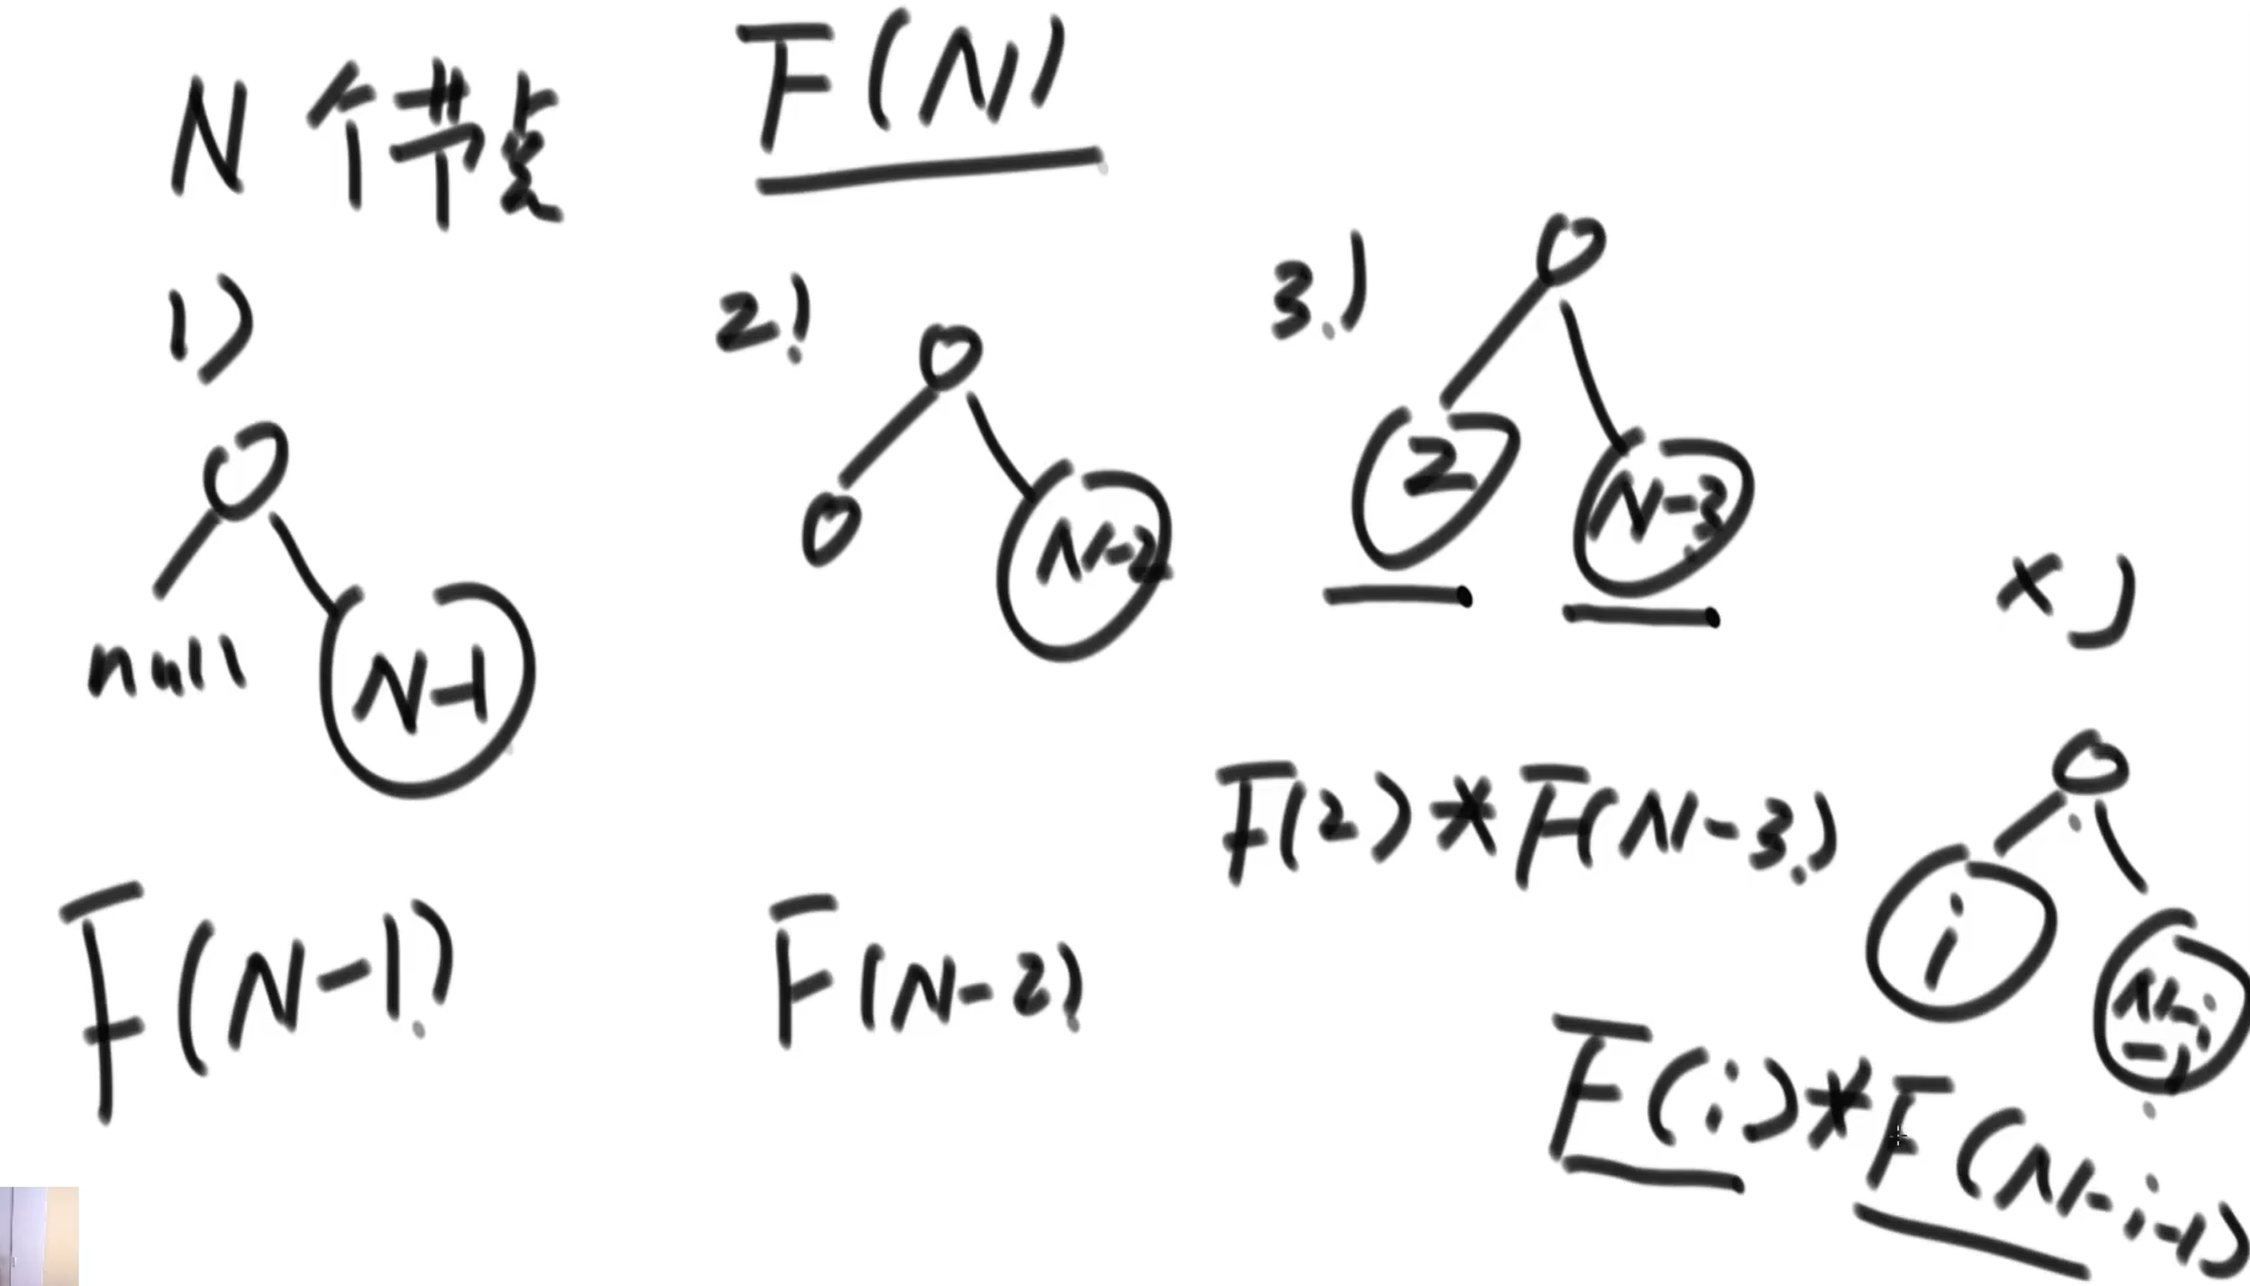 N 个节点 F(N)
1)
null
N-1
F(N-1)
2)
N-2
F(N-2)
3)
2
N-3
F(2)*F(N-3)
x)
i
N-i
-1
F(i)*F(N-i-1)